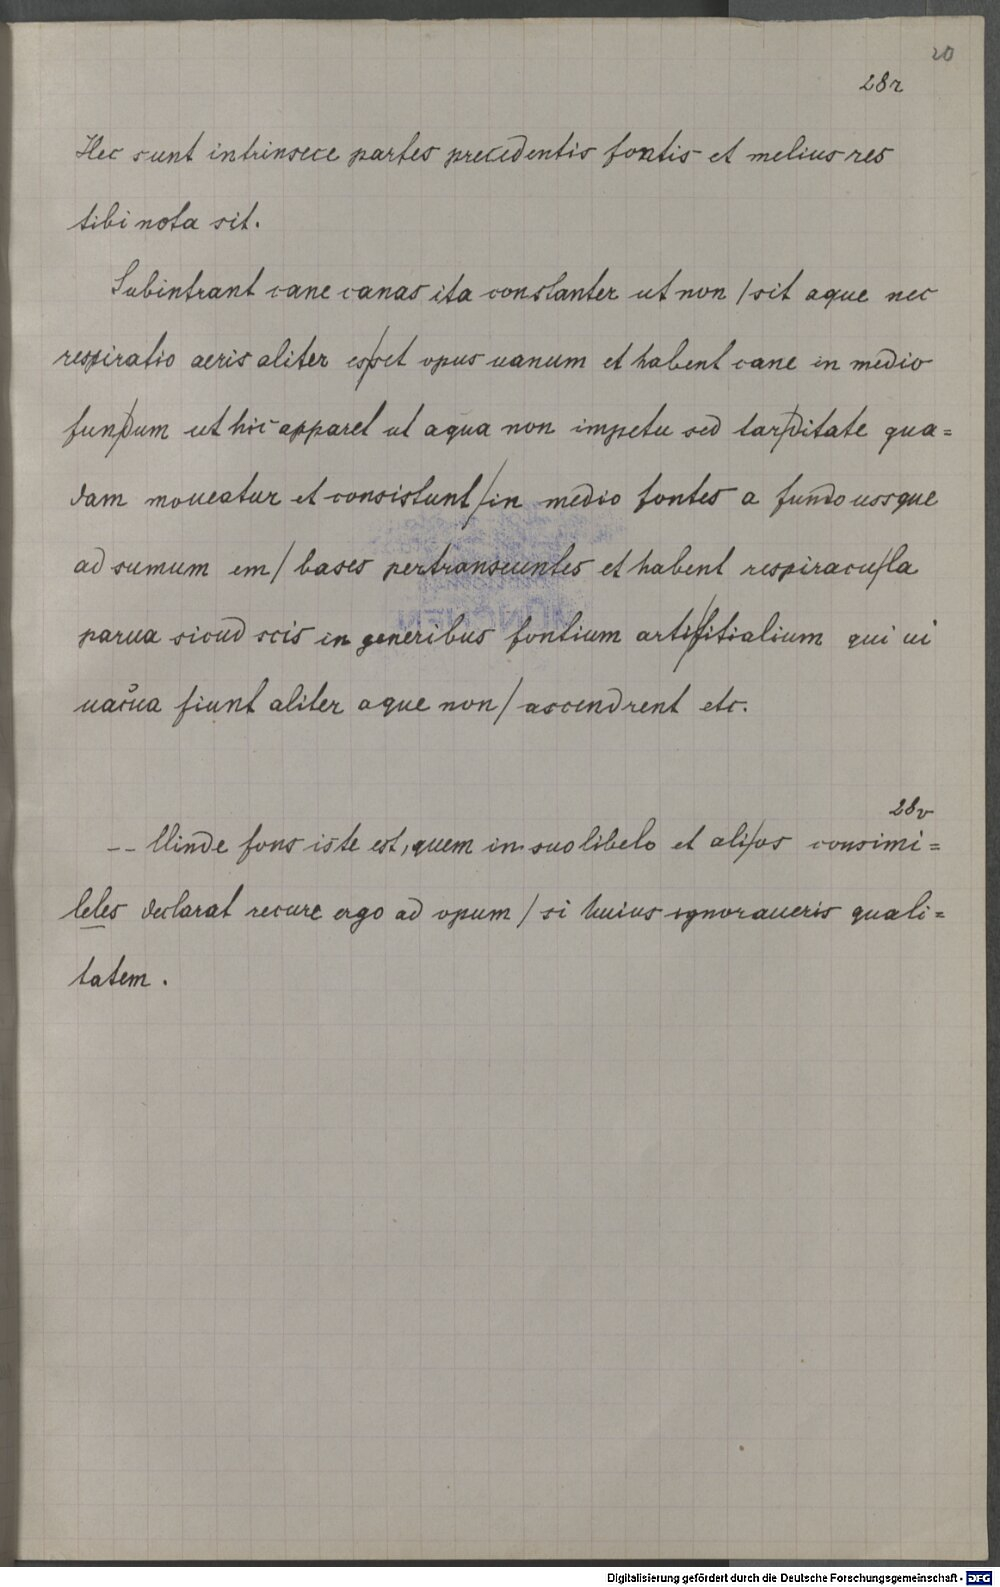 20
28r
Hec sunt intrinsece partes precedentis fontis et melius res
tibi nota sit.
Subintrant cane canas ita constanter ut non / sit aque nec
respiratio aeris aliter es/set opus uanum et habent cane in medio
fun/dum ut hic apparet ut aqua non impetu sed tar/ditate qua=
dam moueatur et consistunt / in medio fontes a fundo ussque
ad sumum em / bases pertranseuntes et habent respiracu/la
parua sicud scis in generibus fontium arti/fitialium qui ui
uacua fiunt aliter aque non / ascendrent etc.
28v
-- Uinde fons iste est, quem in suo libelo et ali/os consimi=
leles declarat recure ergo ad opum / si huius ignoraueris quali=
tatem.
MÜNCHEN
Digitalisierung gefördert durch die Deutsche Forschungsgemeinschaft - DFG